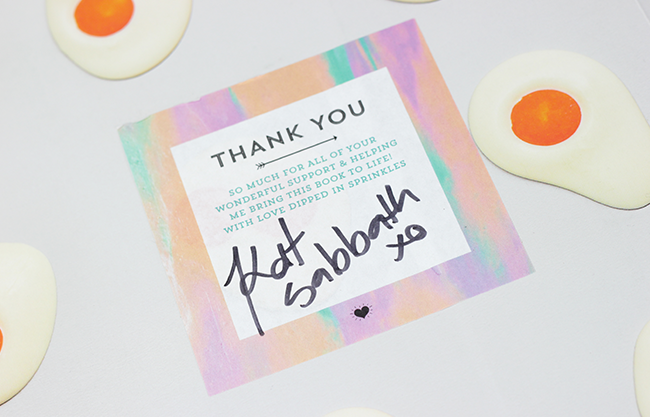 THANK YOU
SO MUCH FOR ALL OF YOUR
WONDERFUL SUPPORT & HELPING
ME BRING THIS BOOK TO LIFE!
WITH LOVE DIPPED IN SPRINKLES
Kat
Sabbath
xo